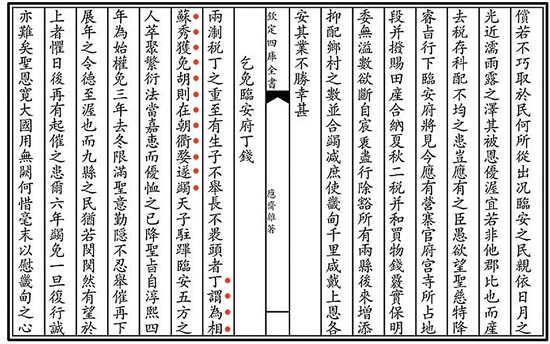 償若不巧取於民何所從出况臨安之民親依日月之
光近濡雨露之澤其被恩優渥宜若非他郡比也而產
去稅存科配不均之患豈應有之臣愚欲望聖慈特降
睿旨行下臨安府將見今應有營寨官府宫寺所占地
段并撥賜田產合納夏秋二稅并和買物錢覈實保明
委無溢數欲斷自宸衷盡行除豁所有兩縣後來增添
抑配鄉村之數並合蠲减庶使畿甸千里咸戴上恩各
安其業不勝幸甚
欽定四庫全書
應齋雜著
乞免臨安府丁錢
兩淛稅丁之重至有生子不舉長不裹頭者丁謂為相
蘇秀獲免胡則在朝衢婺遂蠲天子駐蹕臨安五方之
人萃聚繁衍法當嘉惠而優恤之已降聖旨自淳熙四
年為始權免三年去冬限滿聖意勤隱不忍舉催再下
展年之令德至渥也而九縣之民猶若閔閔然有望於
上者懼日後再有起催之患爾六年蠲免一旦復行誠
亦難矣聖恩寛大國用無闕何惜毫末以慰畿甸之心